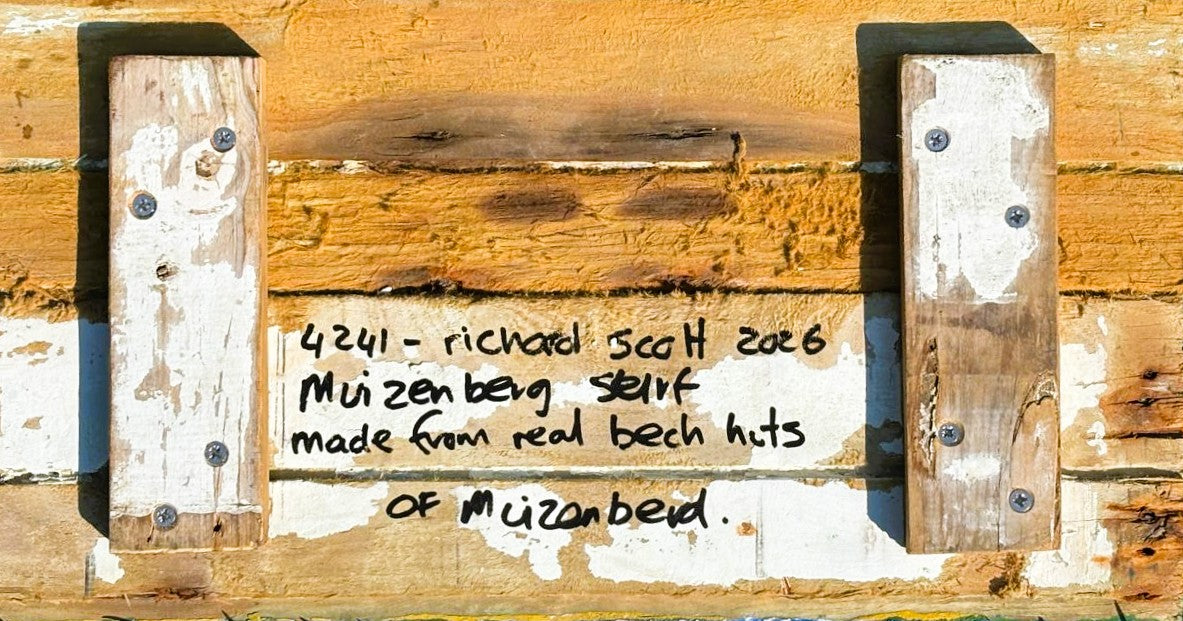 4241 - richard Scott 2026
Muizenberg Surf
made from real bech huts
OF Muizenberd.